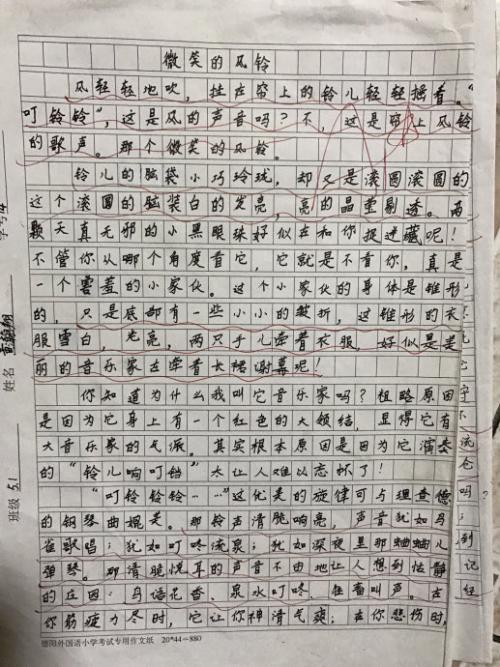 微笑的风铃
风轻轻地吹，挂在帘上的铃儿轻轻摇着。“
叮铃铃”，这是风的声音吗？不，这是帘上风铃
的歌声。那个微笑的风铃。
铃儿的脑袋小巧玲珑，却又是滚圆滚圆的
这个滚圆的脑袋白的发亮，亮的晶莹剔透。两
颗天真无邪的小黑眼珠好似在和你捉迷藏呢！
不管你从哪个角度看它，它就是不看你，真是
一个害羞的小家伙。这个小家伙的身体是锥形
的，只是底部有一些小小的皱折，这锥形的衣
服雪白，光亮，两只手儿牵着衣服，好似是美
丽的音乐家在牵着长裙谢幕呢！
你知道为什么我叫它音乐家吗？粗略原因
是因为它身上有一个红色的大领结，显得它有
大音乐家的气派。其实根本原因是因为它演奏
的“铃儿响叮铛”太让人难以忘怀了！
“叮铃铃铃……”这优美的旋律可与理查德
的钢琴曲媲美。那铃声清脆响亮，声音犹如鸟
雀歌唱；犹如叮咚流泉；犹如深夜里那蛐蛐儿
弹琴。那清脆悦耳的声音不由地让人想到恬静
的庄园：鸟语花香、泉水叮咚、牲畜叫声。在
你筋疲力尽时，它让你神清气爽；在你悲伤时，
德阳外国语小学考试专用作文纸 20*44=880
学号 14
姓名
班级 5.1